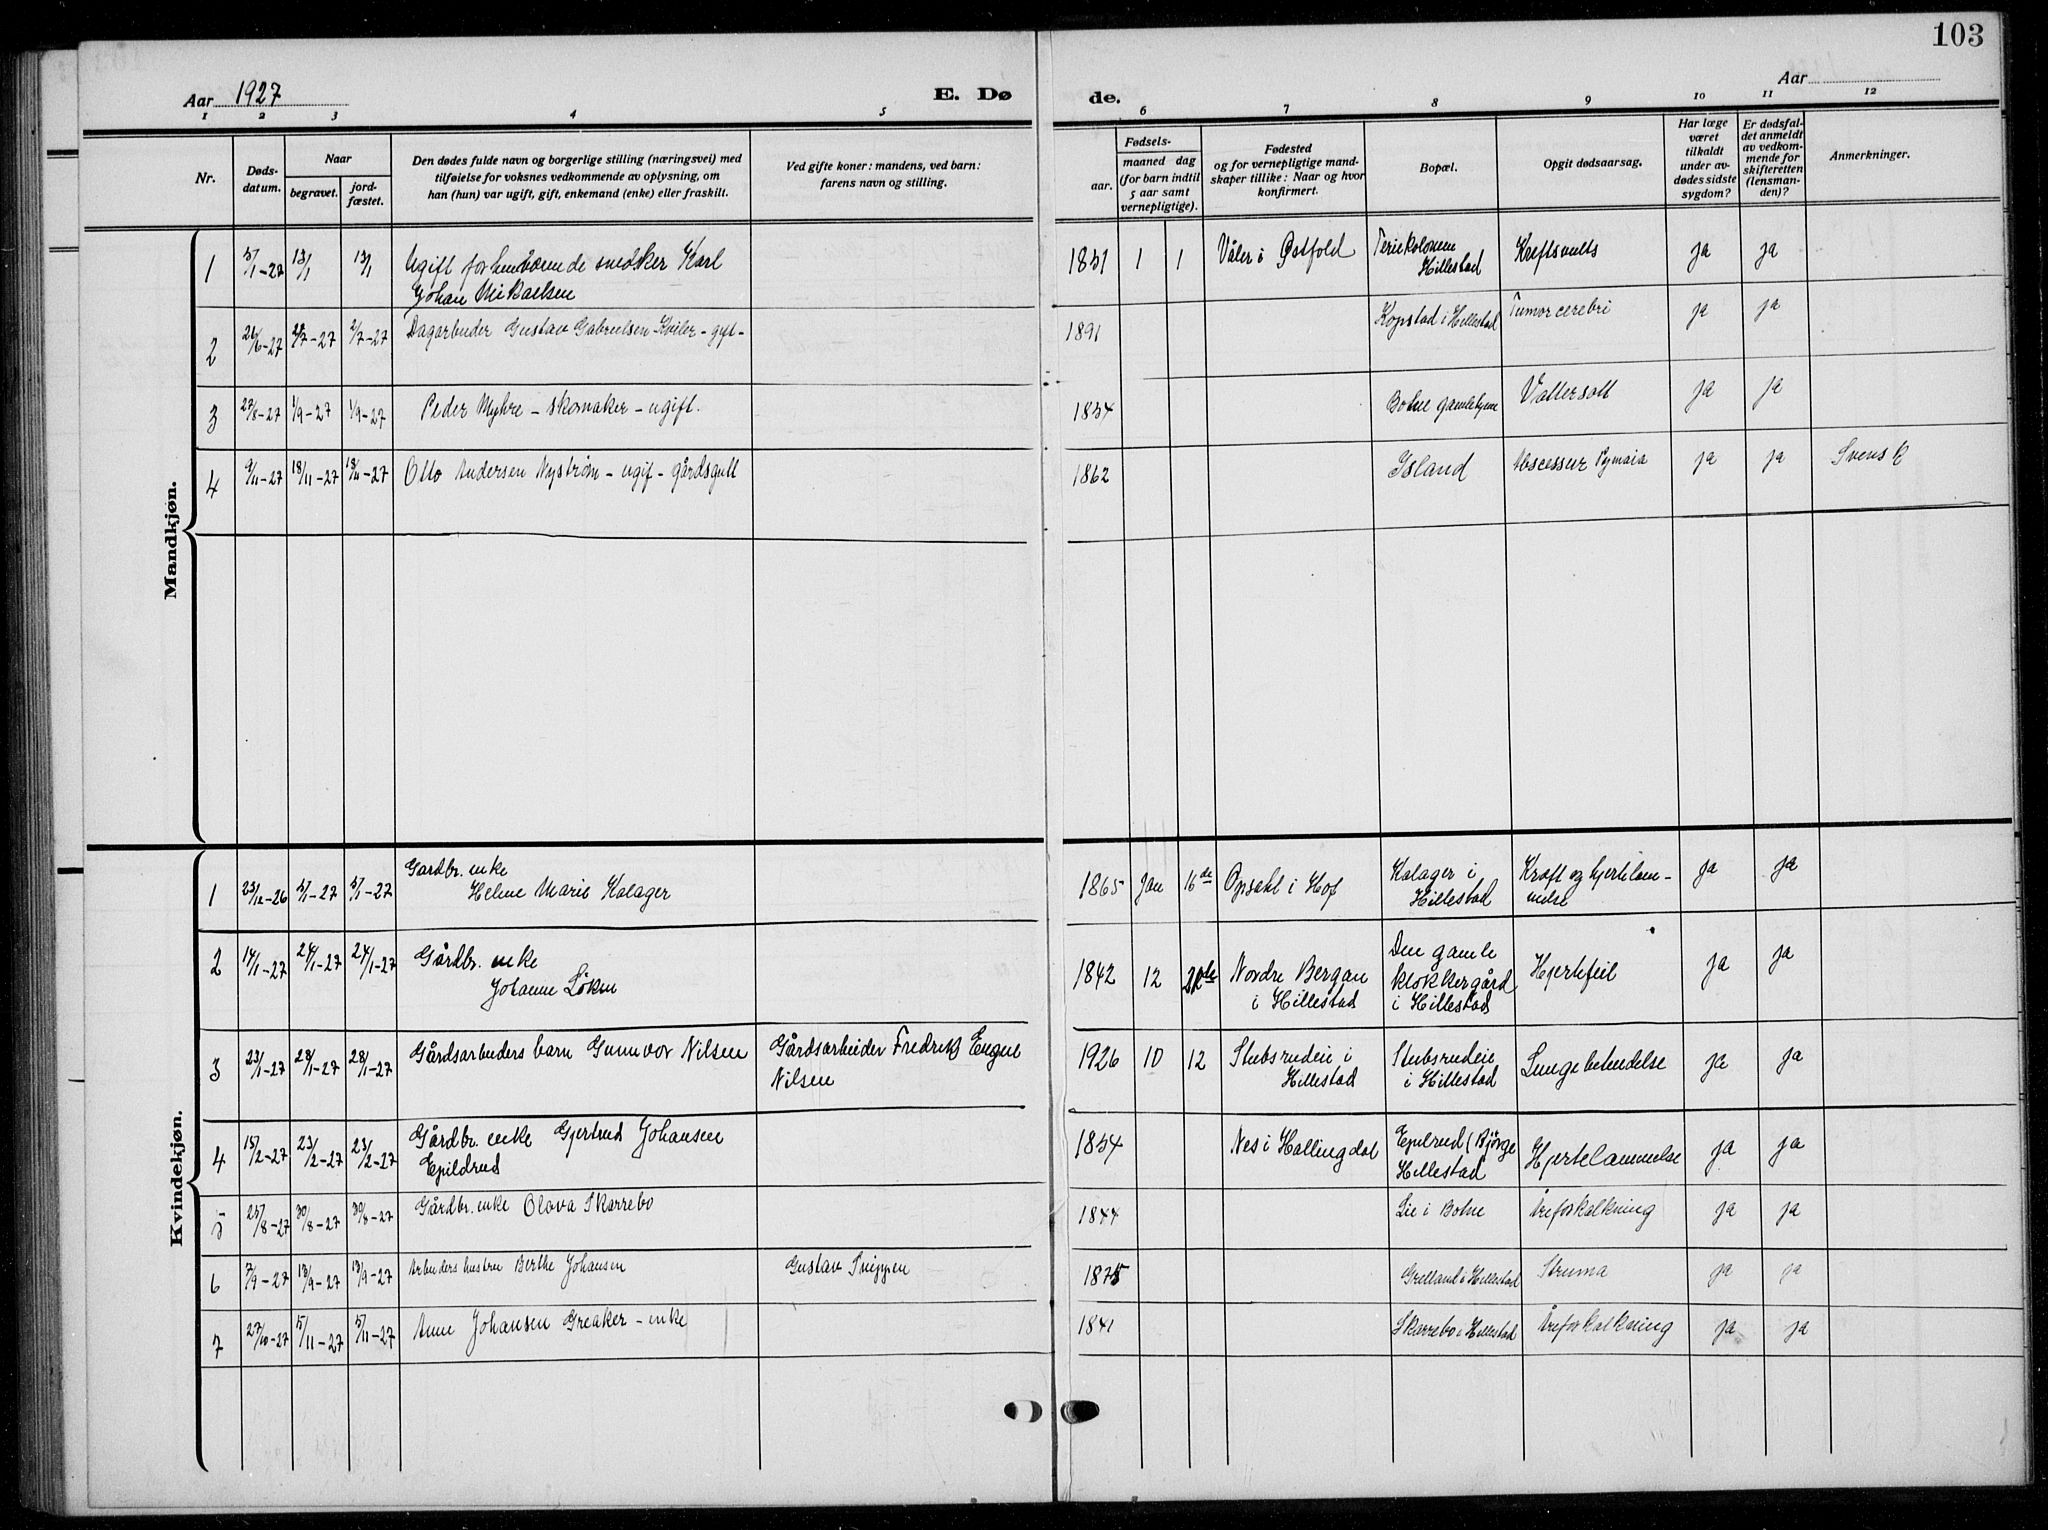 103
Aar 1927
E. Dø
de.
Aar
1 2 3 4 5 6 7 8 9 10 11 12
Nr.
Døds-
datum.
Naar
begravet.
jord-
fæstet.
Den dødes fulde navn og borgerlige stilling (næringsvei) med
tilføielse for voksnes vedkommende av oplysning, om
han (hun) var ugift, gift, enkemand (enke) eller fraskilt.
Ved gifte koner: mandens, ved barn:
farens navn og stilling.
Fødsels-
aar.
maaned dag
(for barn indtil
5 aar samt
vernepligtige).
Fødested
og for vernepligtige mand-
skaper tillike: Naar og hvor
konfirmert.
Bopæl.
Opgit dødsaarsag.
Har læge
været
tilkaldt
under av-
dødes sidste
sygdom?
Er dødsfal-
det anmeldt
av vedkom-
mende for
skifteretten
(lensman-
den)?
Anmerkninger.
Mandkjøn.
1 5/1-27 13/1 13/1 Ugift forhenværende snedker Karl
Johan Mikaelsen
1851 1 1 Våler i Østfold Feriekolonien
Hillestad
ja ja
2 26/6-27 2/7-27 2/7-27 Dagarbeider Gustav Gabrielsen Kviler - gift -
1891 Kopstad i Hillestad Tumor cerebri ja ja
3 27/8-27 1/9-27 1/9-27 Peder Myhre - skomaker - ugift.
1854 Botne gamlehjem Vattersott ja ja
4 9/11-27 18/11-27 18/11-27 Otto Andersen Nystrøm - ugif - gårdsgutt
1862 Island Abscessus Pymaia ja ja Svensk
Kvindekjøn.
1 23/12-26 5/1-27 5/1-27 Gardbr. enke
Helene Marie Kalager
1865 Jan 16de Opsahl i Hof Kalager i
Hillestad
Kræft og hjertelam-
melse
ja ja
2 14/1-27 24/1-27 24/1-27 Gårdbr. enke
Johanne Løken
1842 12 Nordre Bergan
i Hillestad
Den gamle
klokkergård
i Hillestad
Hjertefeil ja ja
3 23/1-27 28/1-27 28/1-27 Gårdsarbeiders barn Gunnvor Nilsen Gårdsarbeider Fredrik Engen
Nilsen
1926 10 12 Stubsrudeie i
Hillestad
Stubsrudeie
i Hillestad
Lungebetendelse ja ja
4 15/2-27 23/2-27 23/2-27 Gårdbr. enke Gjertrud Johansen
Epildrud
1854 Nes i Hallingdal Epilrud (Bjørge
Hillestad
Hjertelammelse ja ja
5 25/8-27 30/8-27 30/8-27 Gårdbr. enke Olava Skarrebo
1844 Lie i Botne Åreforkalkning ja ja
6 7/9-27 13/9-27 13/9-27 Arbeiders hustru Berthe Johansen Gustav
1875 Grelland i Hillestad Struma ja ja
7 27/10-27 5/11-27 5/11-27 Anne Johansen Greaker - enke
1841 Skarrebo i Hillestad Åreforkalkning ja ja